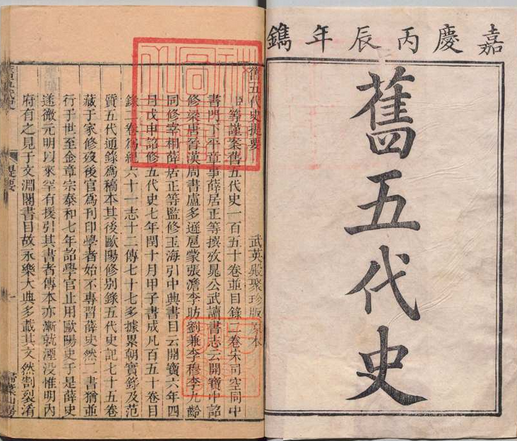 嘉慶丙辰年鐫
舊五代史
舊五代史提要
武英殿聚珍版原本
等謹案舊五代史一百五十卷並目錄二卷宋司空同中
書門下平章事薛居正等撰攷晁公武讀書志云開寶中詔
修梁唐晉漢周書盧多遜扈蒙張澹李昉劉兼李穆李九齡
同修宰相薛居正等監修玉海引中興書目云開寶六年四
月戊申詔修五代史七年閏十月甲子書成凡百五十卷目
錄二卷爲紀六十一志十二傳七十七多據累朝實錄及范
質五代通錄爲稿本其後歐陽修別錄五代史記七十五卷
藏于家修歿後官爲刊印學者始不專習薛史然二書猶並
行于世至金章宗泰和七年詔學官止用歐陽史于是薛史
遂微元明以來罕有援引其書者傳本亦漸就湮没惟明內
府有之見于文淵閣書目故永樂大典多載其文然割裂淆
提要
一